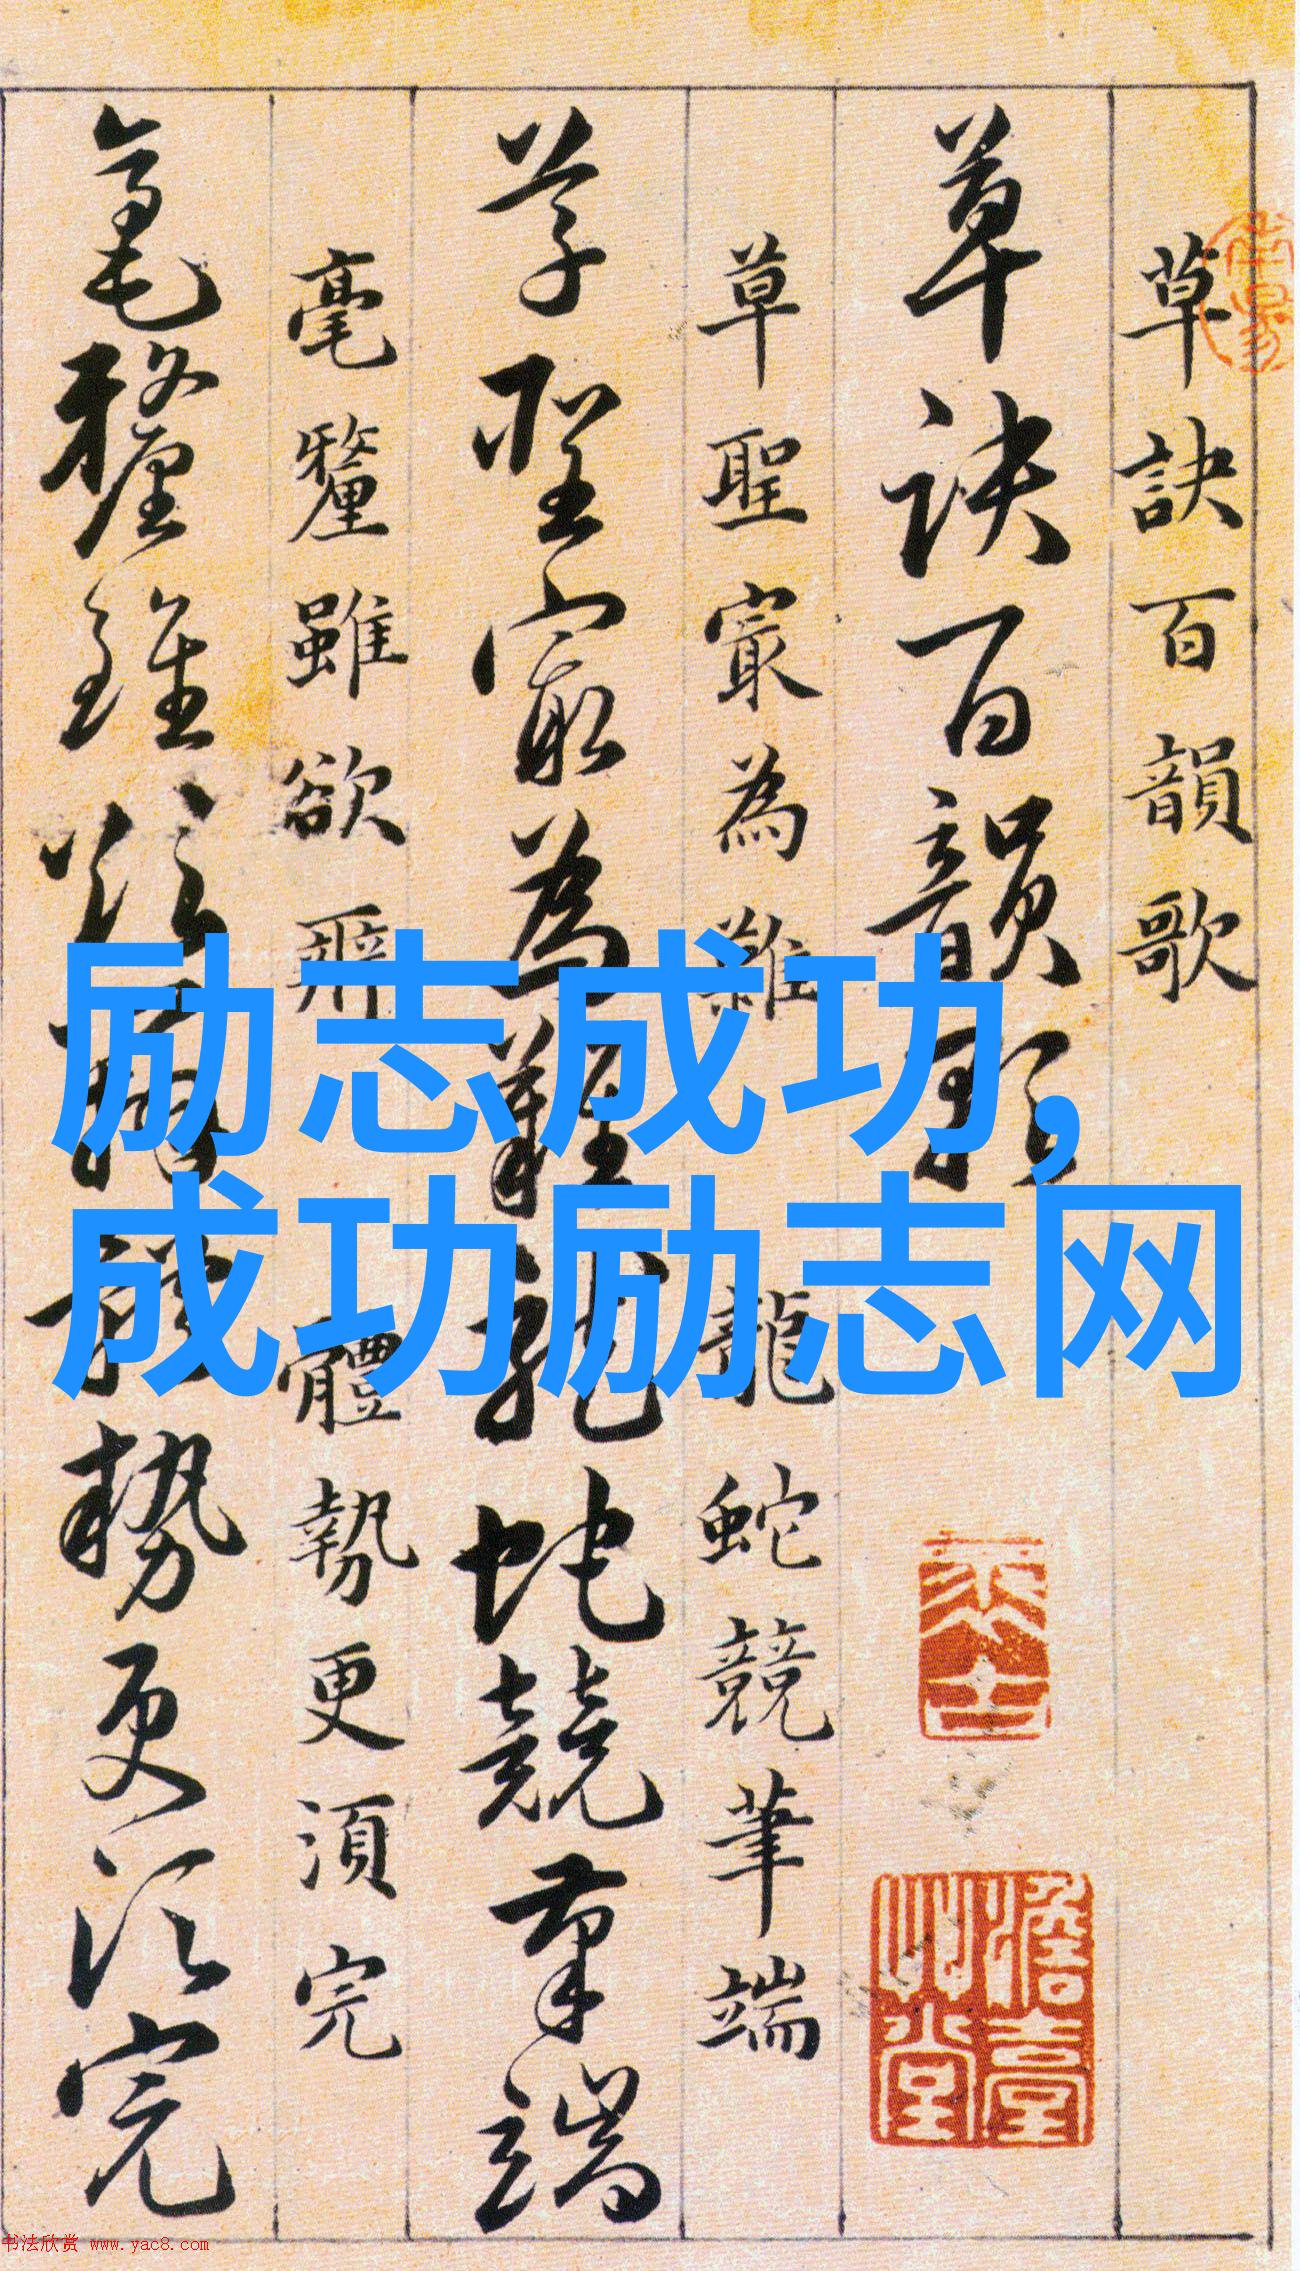 草訣百韻歌
草訣百韻歌
草聖寂為難 龍蛇競筆端
草聖寂為難龍蛇競筆端
毫釐雖欲辨 體勢更須完
毫釐雖欲辨體勢更須完
励志成功,
成功励志网
书法欣赏 www.yac8.com